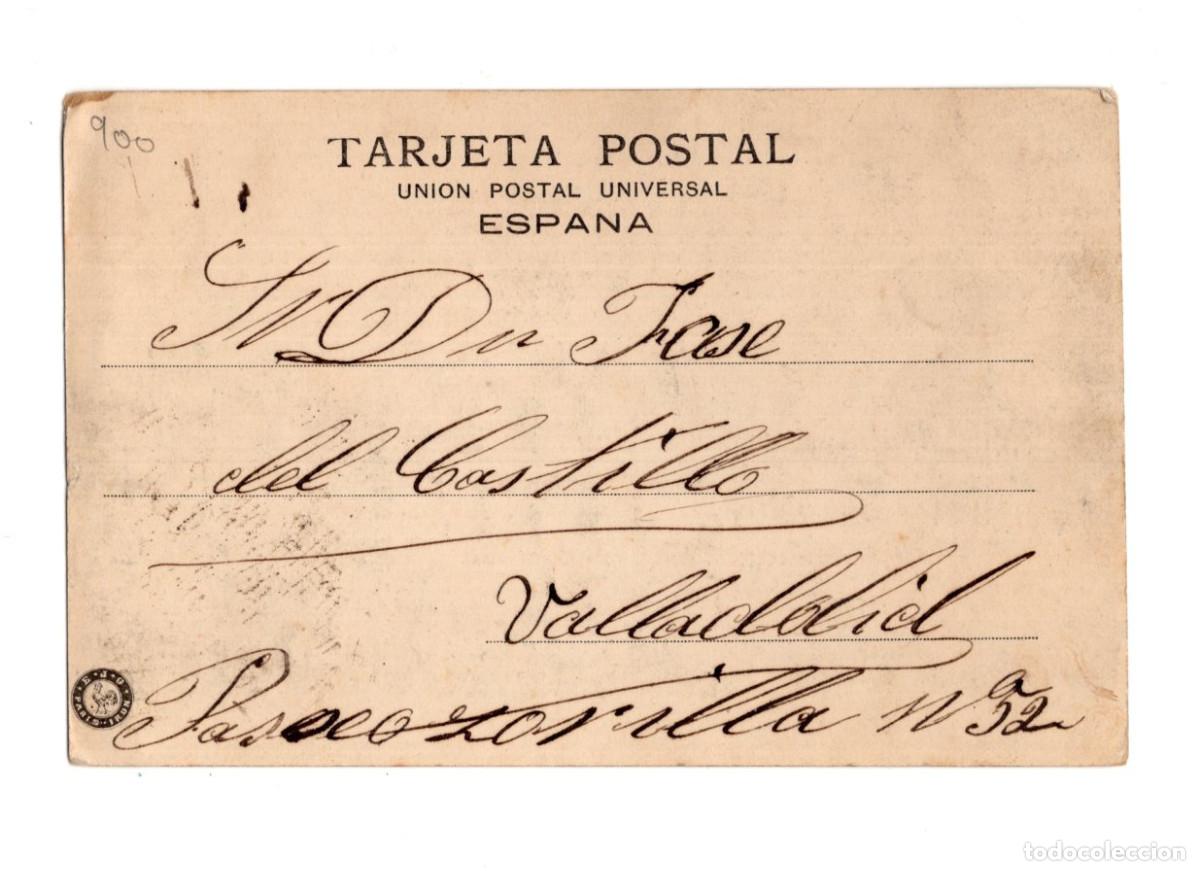 900
TARJETA POSTAL
UNION POSTAL UNIVERSAL
ESPANA
Sr Dn Jose
del Castillo
Valladolid
Paseo zorrilla nº 52
E. J. G. PARIS - IRUN
todocoleccion